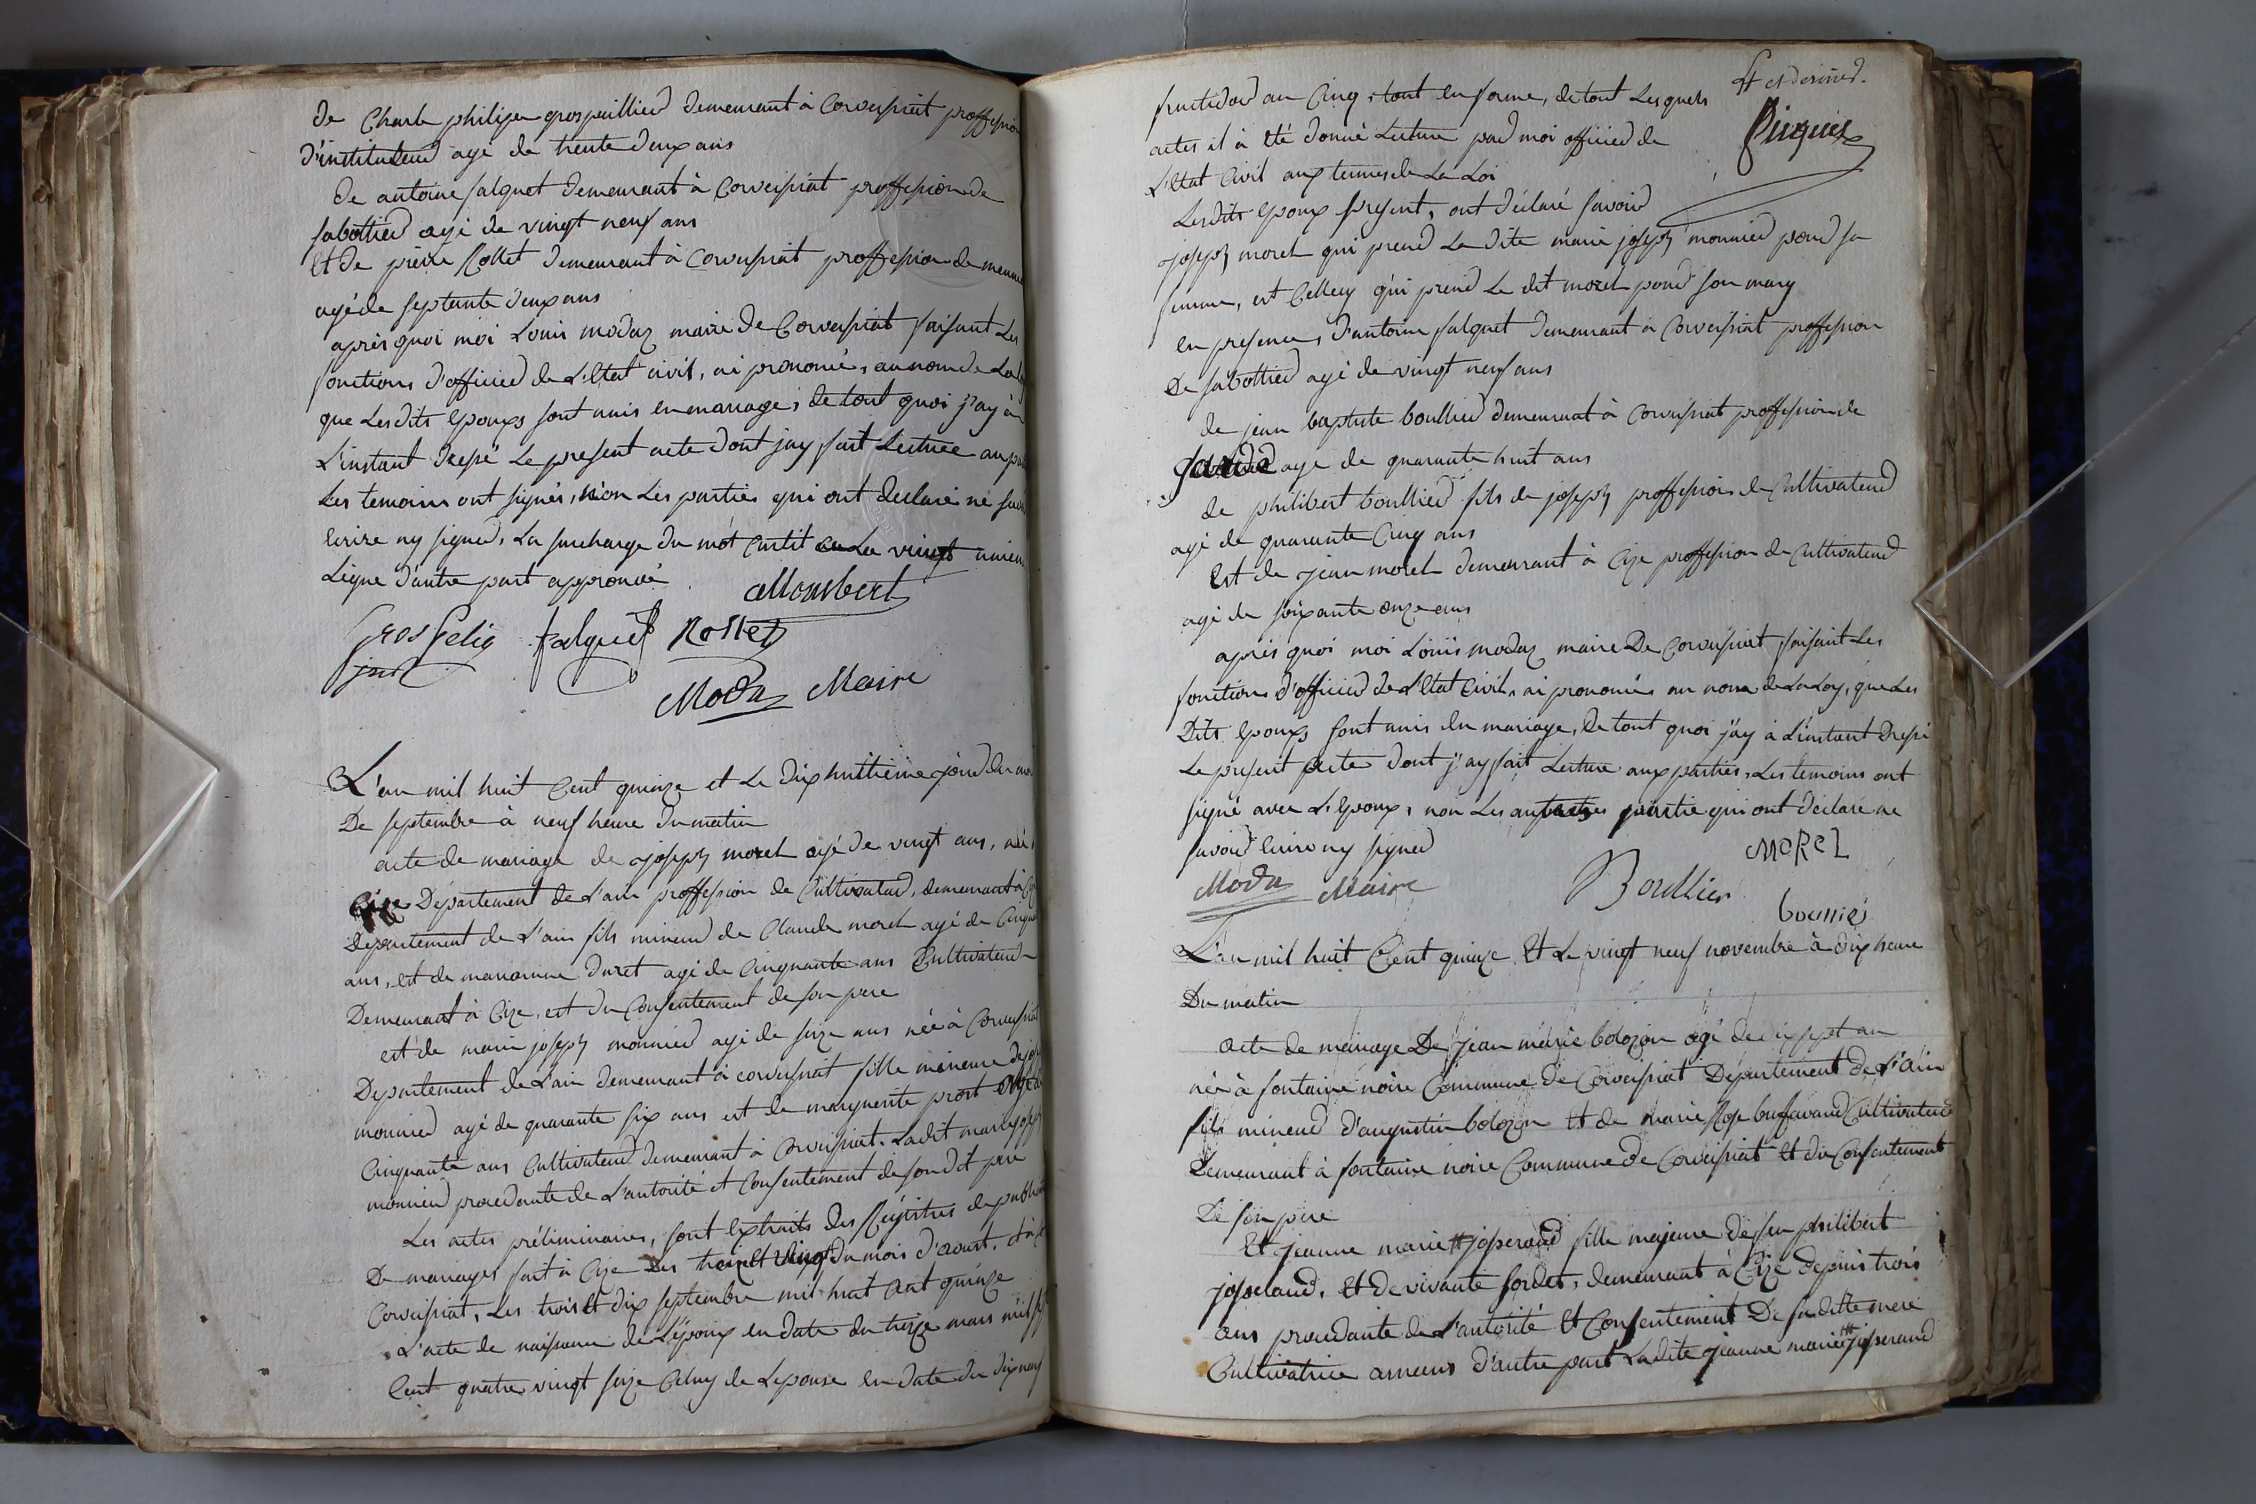 de Charle philipe grospellier demeurant à Corveissiat proffession
d'instituteur agé de trente deux ans
de antoine falquet demeurant à Corveissiat proffession de
sabottier agé de vingt neuf ans
Et de pierre Rollet demeurant à Corveissiat proffession de
agé de septante deux ans
après quoi moi Louis modaz maire de Corveissiat faisant Les
fonctions d'officier de L'Etat civil, ai prononcé, au nom de La
que Lesdits Epoux sont unis en mariage, de tout quoi j'ay à
L'instant dressé Le present acte dont jay fait Lecture aux
Les temoins ont signés, non Les parties qui ont declaré ne
Ecrire ny signer, La surcharge du mot a La vingt
Ligne d'autre part approuvé
Mombert
falquet Rollet
Moda Maire
L'an mil huit Cent quinze et Le dix huitieme jour du
De septembre à neuf heure du matin
acte de mariage de joseph morel agé de vingt ans, né
Cize Département de L'ain proffession de Cultivateur, demeurant à
Département de L'ain fils mineur de Claude morel agé de
ans, et de marianne duret agé de Cinquante ans Cultivateur
Demeurant à Cize, et du Consentement de son pere
et de marie joseph monnier agé de seize ans née à Corveissiat
Departement de L'ain demeurant à corveissiat fille mineure de
monnier agé de quarante six ans et de marguerite prost agé
Cinquante ans Cultivateur demeurant à Corveissiat. Ladit marie joseph
monnier procedante de L'autorité et Consentement de son dit pere
Les actes préliminaires, sont Extraits des Régistres de
De mariages fait à Cize Les treize et vingt du mois d'avout, et à
Corveissiat, Les trois et dix septembre mil huit Cent quinze
L'acte de naissance de L'époux en date du treize mars mil
Cent quatre vingt seize Celuy de Lepouse en date du dix neuf
fructidor an Cinq, tout en forme, de tout Lesquels
actes il à été donné Lecture par moi officier de
L'Etat Civil aux termes de La Loi
4e et dernier.
Lesdits Epoux present, ont déclaré savoir
joseph morel qui prend La dite marie joseph monnier pour sa
femme, et Celle cy qui prend Le dit morel pour son mary
en presence, d'antoine falquet demeurant à Corveissiat proffession
De sabottier agé de vingt neuf ans
de jean baptiste boullier demeurant à Corveissiat proffession de
agé de quarante huit ans
de philibert boullier fils de joseph proffession de Cultivateur
agé de quarante Cinq ans
Et de jean morel demeurant à Cize proffession de Cultivateur
agé de soixante onze ans
après quoi moi Louis modaz maire De Corveissiat faisant Les
fonctions d'officier de L'Etat Civil, ai prononcés au nom de La Loy, que Les
Dits Epoux sont unis en mariage, de tout quoi j'ay à L'instant dressé
Le present acte dont j'ay fait Lecture aux parties, Les temoins ont
signé avec L'Epoux, non Les autres partie qui ont déclaré ne
savoir Ecrire ny signer
MOREL
Moda Maire
Boullier
L'an mil huit Cent quinze Et Le vingt neuf novembre à dix heure
Du matin
acte de mariage De jean marie bolozon agé de dix sept an
né à fontaine noire Commune de Corveissiat Département de L'Ain
fils mineur d'augustin bolozon Et de marie Rose Cultivateur
Demeurant à fontaine noire Commune de Corveissiat Et du Consentement
De son pere
Et jeanne marie # josserand fille majeure de feu philibert
josserand, Et de vivante demeurant à Cize depuis trois
ans procedante de L'autorité Et Consentement De saditte mere
Cultivatrice d'autre part Ladite jeanne marie # josserand